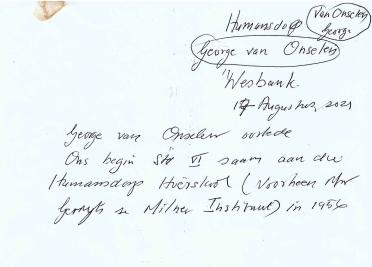 Humansdorp
Van Onselen
George
George van Onselen
Wesbank.
17 Augustus, 2021
George van Onselen oorlede
Ons begin Std VI saam aan die
Humansdorp Hoërskool (voorheen Mnr
se Milner Instituut) in 1956